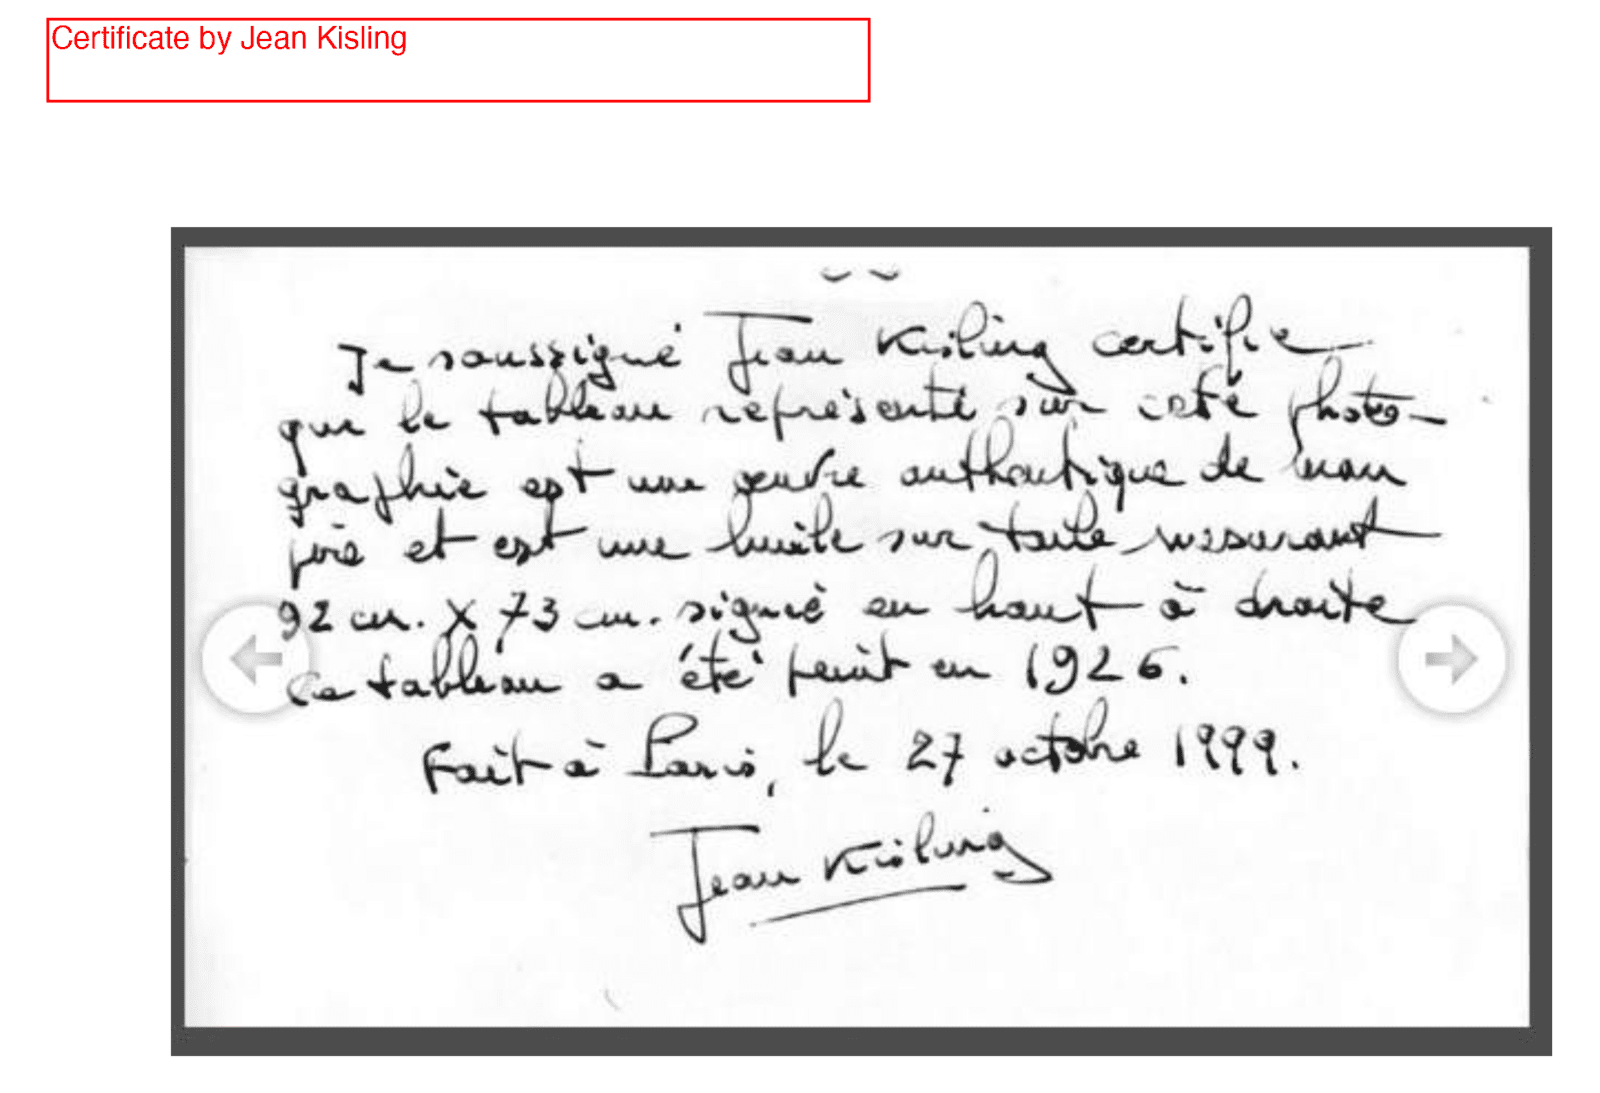 Certificate by Jean Kisling
Je soussigné Jean Kisling certifie
que le tableau représenté sur cette photo-
graphie est une œuvre authentique de mon
père et est une huile sur toile mesurant
92 cm. X 73 cm. signé en haut à droite
Ce tableau a été peint en 1926.
Fait à Paris, le 27 octobre 1999.
Jean Kisling